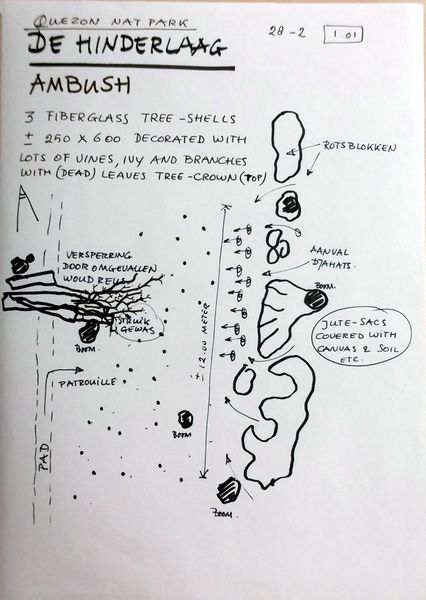 QUEZON NAT PARK
DE HINDERLAAG
28-2
1.01
AMBUSH
3 FIBERGLASS TREE-SHELLS
± 250 X 600 DECORATED WITH
LOTS OF VINES, IVY AND BRANCHES
WITH (DEAD) LEAVES TREE-CROWN (TOP)
ROTSBLOKKEN
VERSPERRING
DOOR OMGEVALLEN
WOUDREUS
AANVAL
DJAHATS.
BOOM
STRUIK
GEWAS
BOOM
± 12.00 METER
JUTE-SACS
COVERED WITH
CANVAS & SOIL
ETC.
PATROUILLE
BOOM
PAD
BOOM.